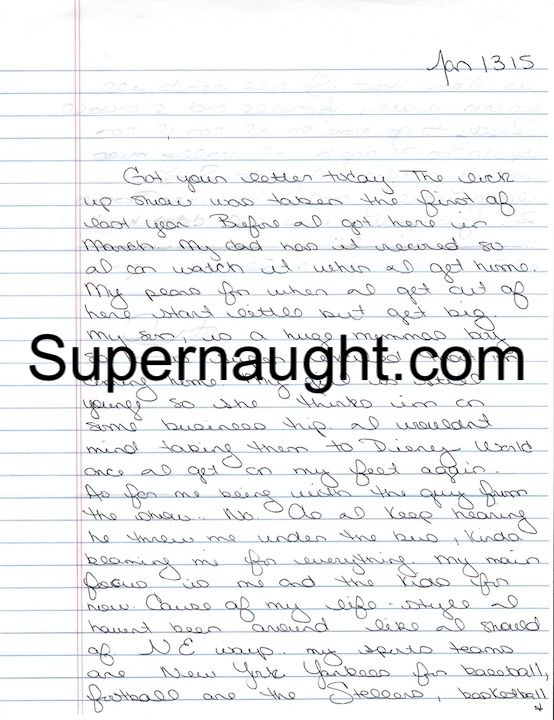 Jan 13 15
Got your letter today The lock
up show was taken the first of
last year. Before I got here in
March. My dad has it recored so
I can watch it when I get home.
My plans for when I get out of
here start little but get big.
My son, is a huge mommas boy
Supernaught.com
home my girl is still
young so she thinks im on
some business trip I wouldnt
mind taking them to Disney World
once I get on my feet again.
As for me being with the guy from
the show.. No. As I keep hearing
he threw me under the bus, kinda
blaming me for everything my main
focus is me and the kids for
now. Cause of my life-style I
havent been around like I should
of NE ways.. my sports teams
are New York Yankees for baseball,
football are the Stellers, basketball